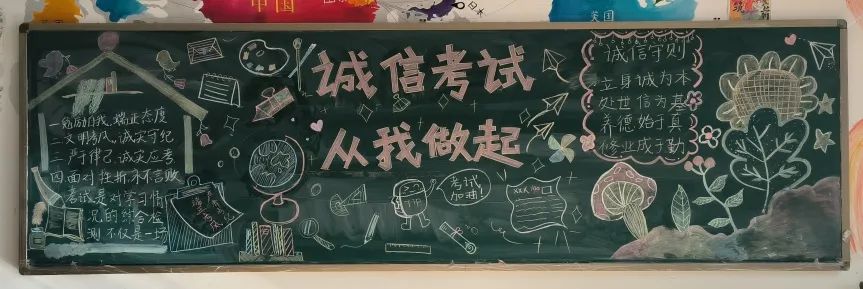 中国
美国
诚信考试
从我做起
一、勉励自我、端正态度
二、文明考风、诚实守纪
三、严于律己、诚实应考
四、面对挫折、永不言败
考试是对学习情
况的综合检
测不仅是一场
考试
加油!
XXX 100
诚信守则
立身诚为本
处世信为基
养德始于真
修业成于勤